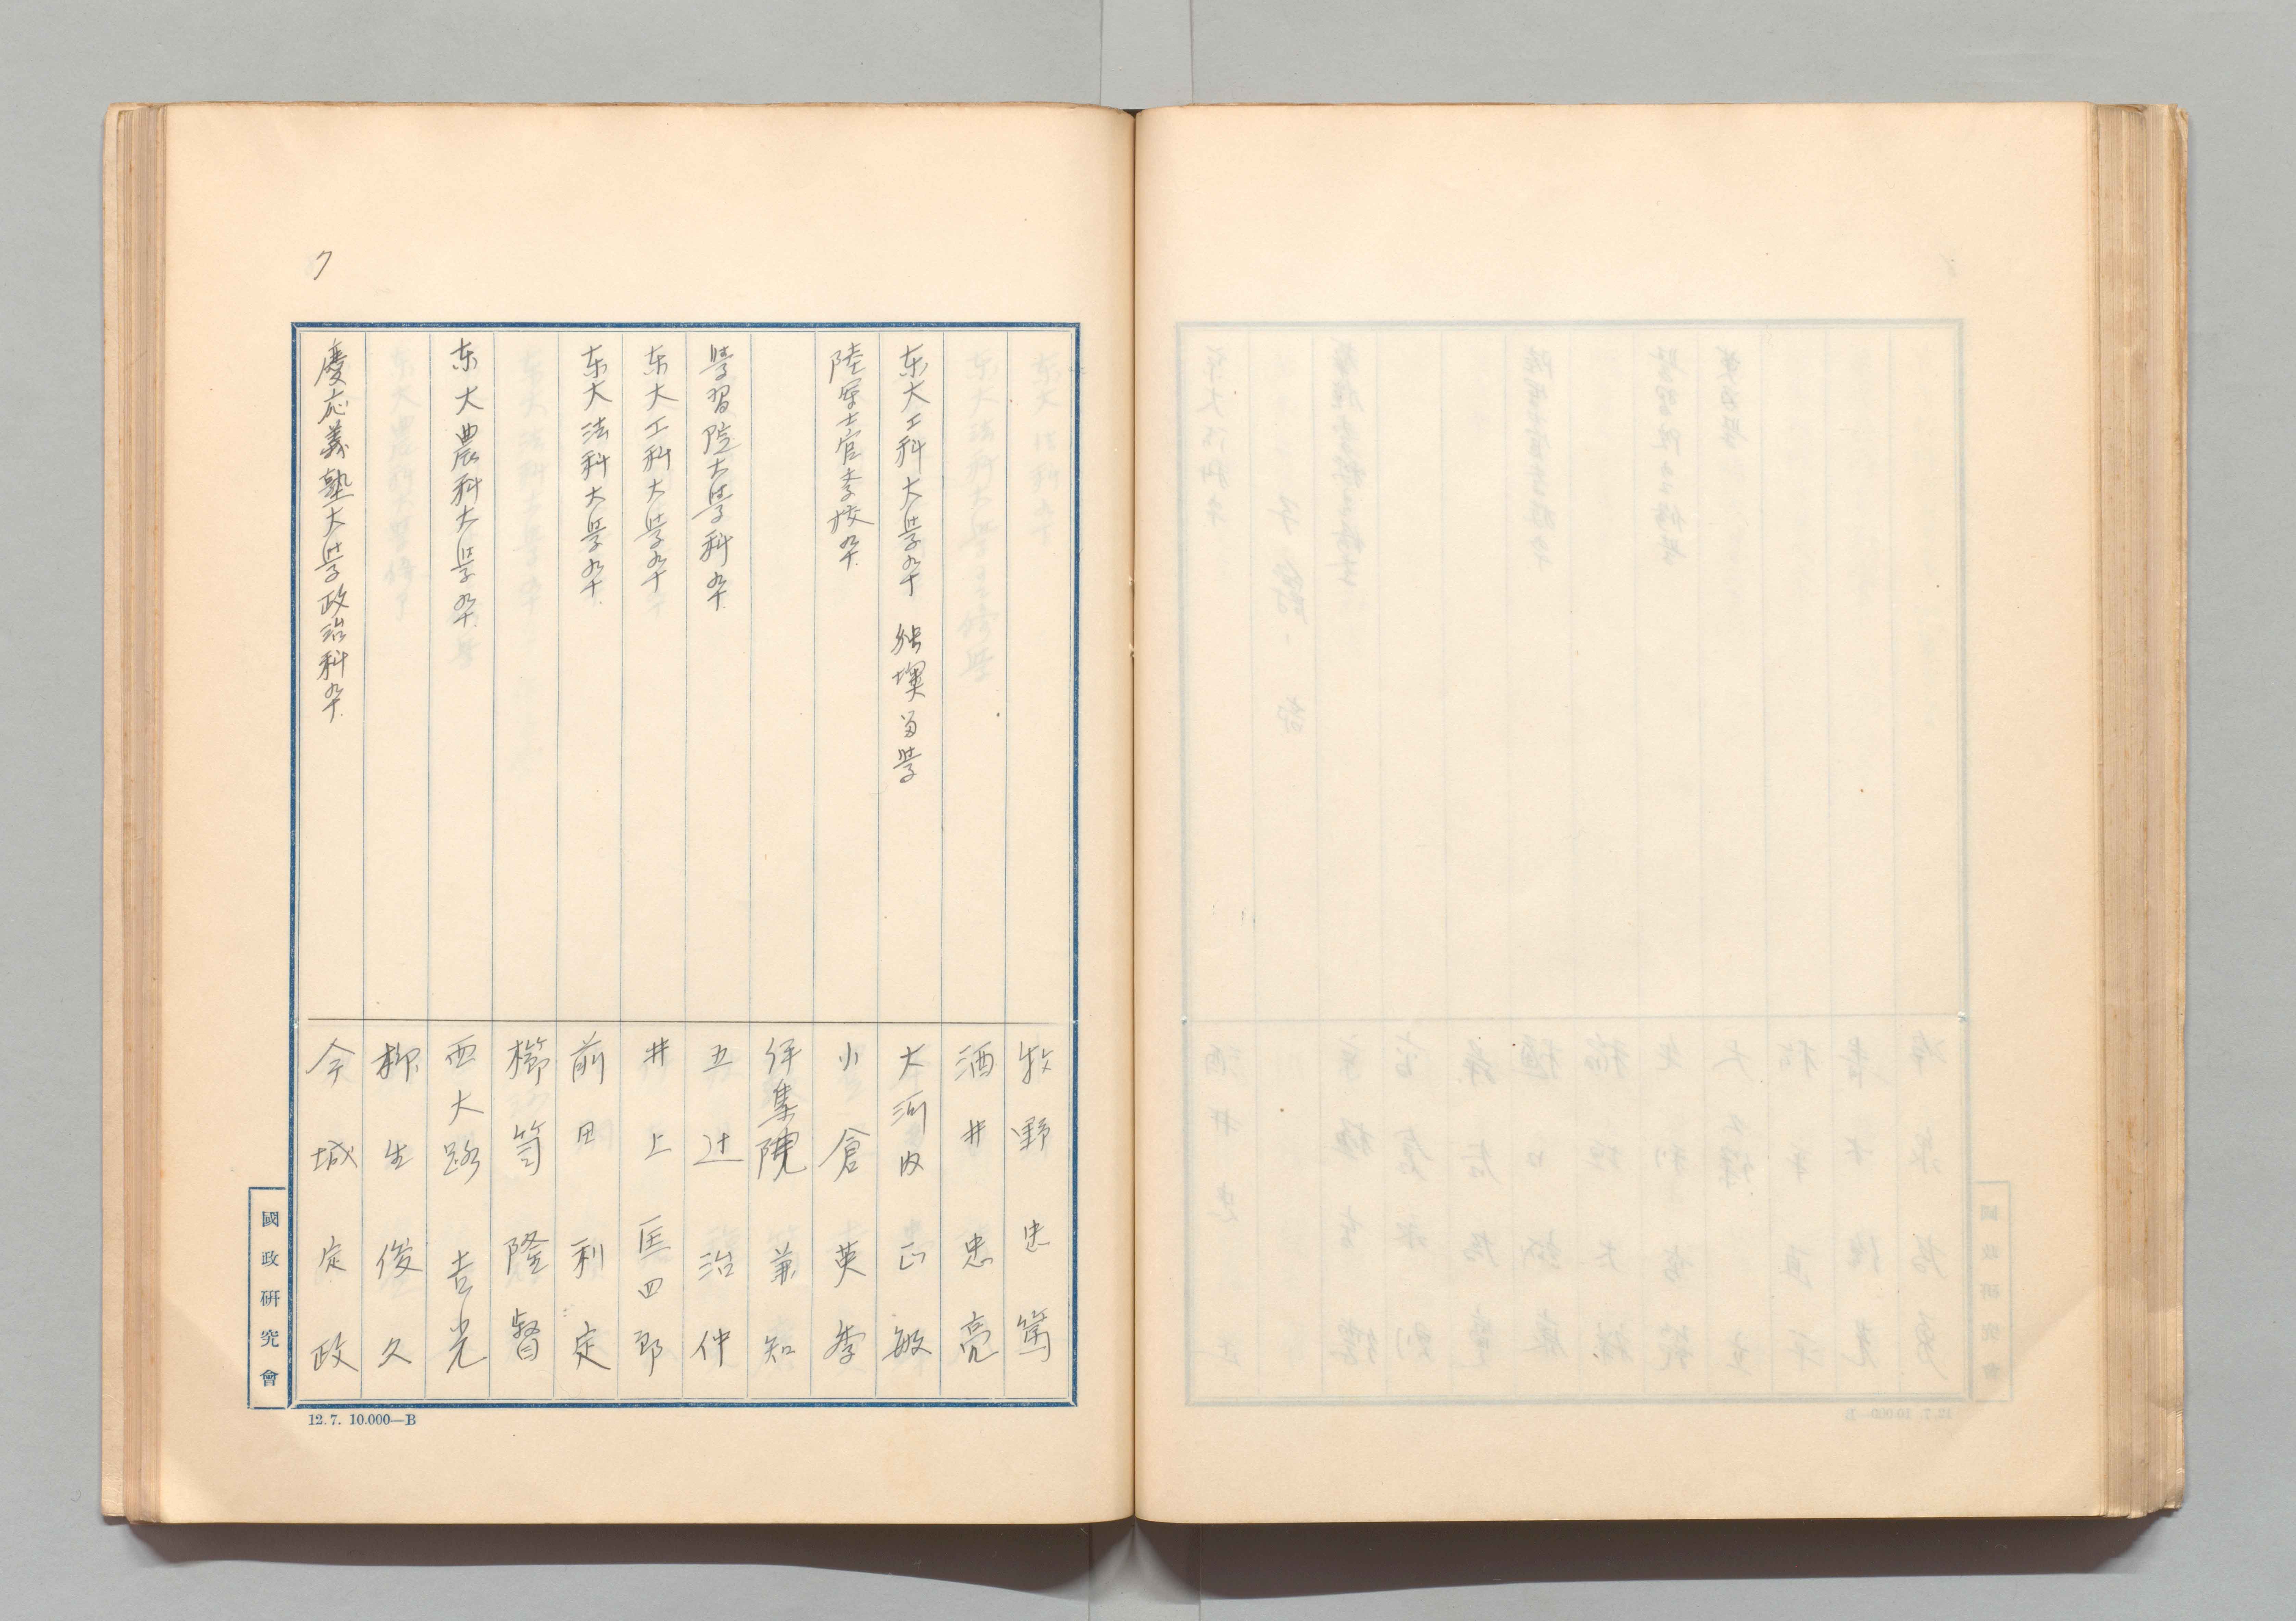 7
牧野忠篤
酒井忠亮
东大工科大学卒 独墺留学
大河内正敏
陸軍士官学校卒.
小倉英季
伊集院兼知
学習院大学科卒.
五辻治仲
东大工科大学卒
井上匡四郎
东大法科大学卒.
前田利定
櫛笥隆督
东大農科大学卒.
西大路吉光
柳生俊久
慶応義塾大学政治科卒.
今城定政
國政研究會
12.7. 10.000—B